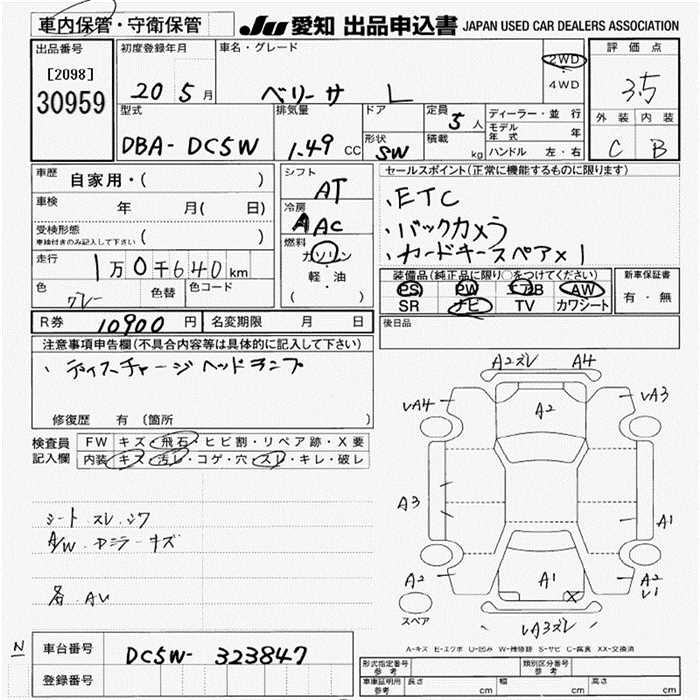 車内保管・守衛保管 JU 愛知 出品申込書 JAPAN USED CAR DEALERS ASSOCIATION
出品番号 初度登録年月 車名・グレード 2WD 評価点
[2098] 20 5月 ベリーサ L 4WD 3.5
30959 型式 排気量 ドア 定員 5人 ディーラー・並行 外装 内装
DBA-DC5W 1.49 CC 形状 SW 積載 kg モデル年式 年 C B
ハンドル 左・右
車歴 自家用・( ) シフト AT セールスポイント(正常に機能するものに限ります)
車検 年 月( 日) 冷房 AAC ・ETC
受検形態 車検付きのみ記入して下さい ( ) 燃料 ガソリン ・バックカメラ
走行 1万0千640km 軽・油 ・カードキースペア×1
色 グレー 色替 色コード ( ) 装備品(純正品に限り○をつけてください) 新車保証書
PS PW エアB AW 有・無
R券 10900円 名変期限 月 日 SR ナビ TV カワシート
後日品
注意事項申告欄(不具合内容等は具体的に記入して下さい)
・ディスチャージヘッドランプ
修復歴 有 〔箇所 〕
検査員 FW キズ・飛石・ヒビ割・リペア跡・X要
記入欄 内装 キズ・汚レ・コゲ・穴・スレ・キレ・破レ
シートスレ.シワ
A/W.
各.AU
A2スレ A4
A4 A2 A3
A3 A1
A2 A1 X A2
スペア A3スレ
A-キズ E-エクボ U-凹み W-補修跡 S-サビ C-腐食 XX-交換済
N 車台番号 DC5W-323847
登録番号
形式指定番号 参考 類別区分番号 参考
車庫証明用 参考 長さ cm 幅 cm 高さ cm